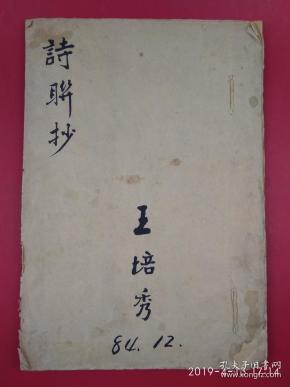 詩聯抄
王培秀
84.12.
2019-
孔夫子旧书网